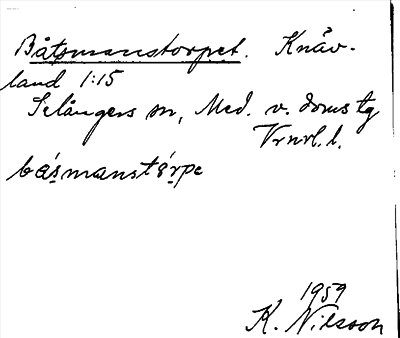 Båtsmanstorpet. Knäv-
land 1:15
Selångers sn, Med. v. doms tg
Vrnrl. l.
bás̩manstår̩pe
1959
K. Nilsson